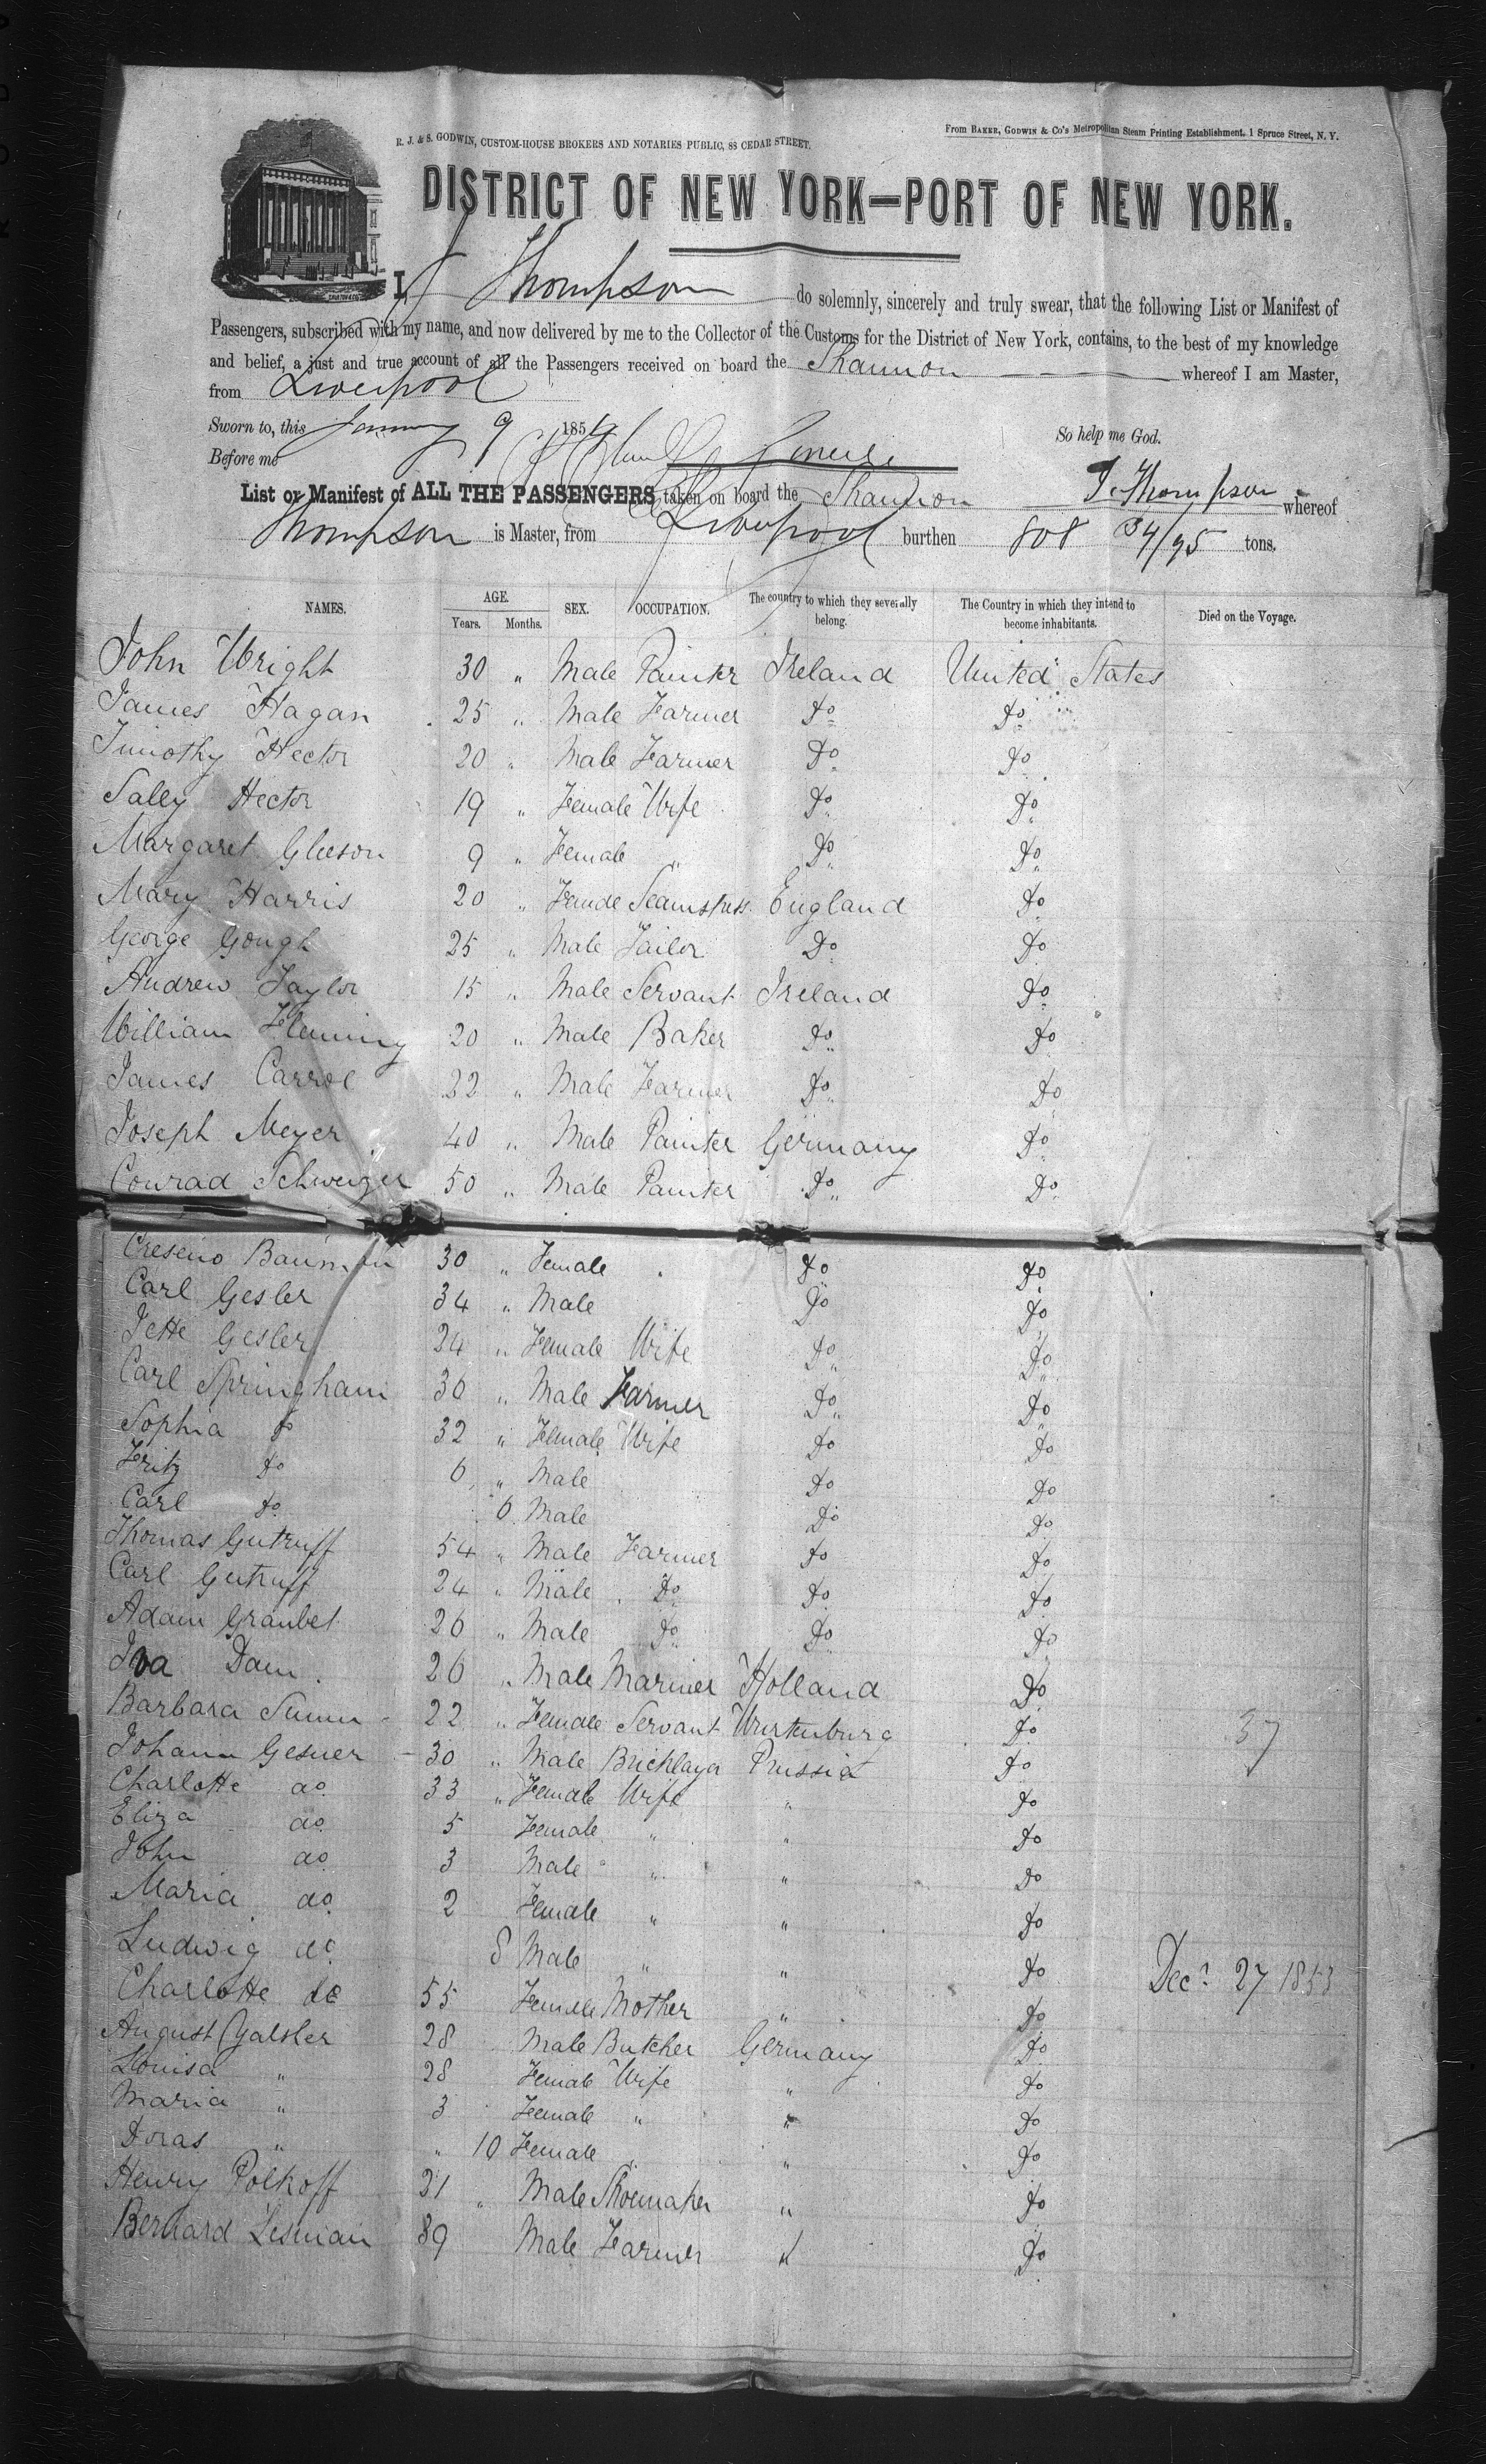 R. J. & S. GODWIN, CUSTOM-HOUSE BROKERS AND NOTARIES PUBLIC, 88 CEDAR STREET.
From BAKER, GODWIN & Co's Metropolitan Steam Printing Establishment, 1 Spruce Street, N. Y.
DISTRICT OF NEW YORK—PORT OF NEW YORK.
I, J Thompson do solemnly, sincerely and truly swear, that the following List or Manifest of
Passengers, subscribed with my name, and now delivered by me to the Collector of the Customs for the District of New York, contains, to the best of my knowledge
and belief, a just and true account of all the Passengers received on board the Shannon whereof I am Master,
from Liverpool
Sworn to, this January 9 1854 So help me God.
Before me
List or Manifest of ALL THE PASSENGERS taken on board the Shannon J. Thompson whereof
Thompson is Master, from Liverpool burthen 808 34/95 tons.
NAMES. AGE. Years. Months. SEX. OCCUPATION. The country to which they severally belong. The Country in which they intend to become inhabitants. Died on the Voyage.
John Wright 30 " Male Painter Ireland United States
James Hagan 25 " Male Farmer Do Do
Timothy Hector 20 " Male Farmer Do Do
Saley Hector 19 " Female Wife Do Do
Margaret Gleeson 9 " Female " Do Do
Mary Harris 20 " Female Seamstress England Do
George Gough 25 " Male Tailor Do Do
Andrew Taylor 15 " Male Servant Ireland Do
William Fleming 20 " Male Baker Do Do
James Carrol 22 " Male Farmer Do Do
Joseph Meyer 40 " Male Painter Germany Do
Conrad Schweizer 50 " Male Painter Do Do
30 " Female Do Do
Carl Gesler 34 " Male Do Do
Jette Gesler 24 " Female Wife Do Do
Carl Springham 36 " Male Farmer Do Do
Sophia do 32 " Female Wife Do Do
Fritz do 6 " Male Do Do
Carl do 6 Male Do Do
Thomas Gutruff 54 " Male Farmer Do Do
Carl Gutruff 24 " Male Do Do Do
Adam Graubel 26 " Male Do Do Do
Iva Dam 26 " Male Mariner Holland Do
Barbara 22 " Female Servant Wurtenburg Do 37
Johann Gesner 30 " Male Bricklayer Prussia Do
Charlotte do 33 " Female Wife " Do
Eliza do 5 Female " " Do
John do 3 Male " " Do
Maria do 2 Female " " Do
Ludwig do 8 Male " " Do Decr 27 1853
Charlotte do 55 Female Mother " Do
August 28 Male Butcher Germany Do
Louisa " 28 Female Wife " Do
Maria " 3 Female " " Do
Doras " " 10 Female " " Do
Henry Polkoff 21 " Male Shoemaker " Do
Bernard Lesman 39 Male Farmer " Do